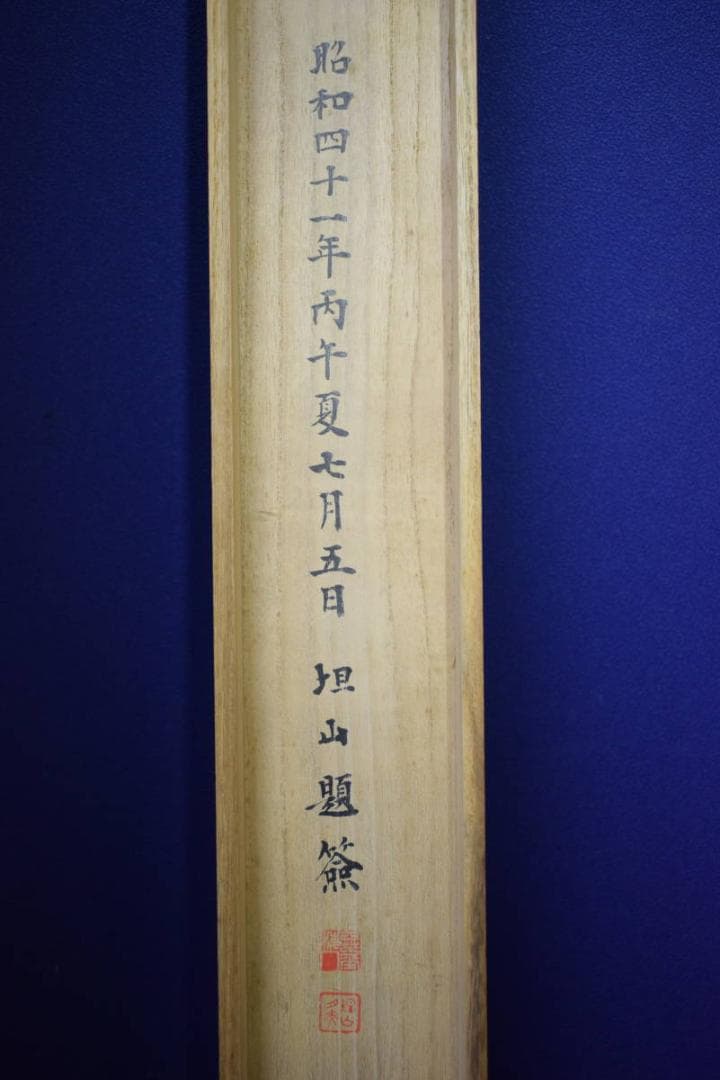 昭和四十一年丙午夏七月五日 坦山題簽